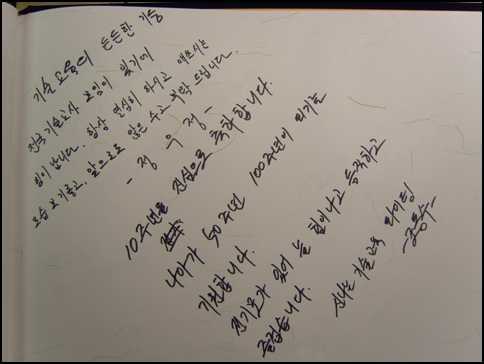 기술교육의 든든한 기둥
전국 기술교사 모임이 있기에
힘이 납니다. 항상 열심히 하시고 애쓰시는
모습 보기좋고, 앞으로도 많은 수고 부탁 드립니다.
- 정우정 -
10주년을 진심으로 축하합니다.
나아가 50주년 100주년이 되기를
기원합니다.
전기모가 있어 늘 힘이나고 든직하고
즐겁습니다.
신나는 기술교육 화이팅!